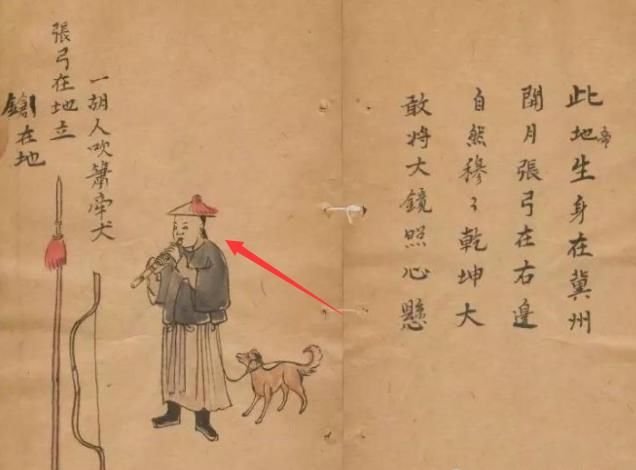 此地帝生身在冀州
開月張弓在右邊
自然穆〻乾坤大
敢將大鏡照心懸
一胡人吹簫牽犬
張弓在地立
鎗在地